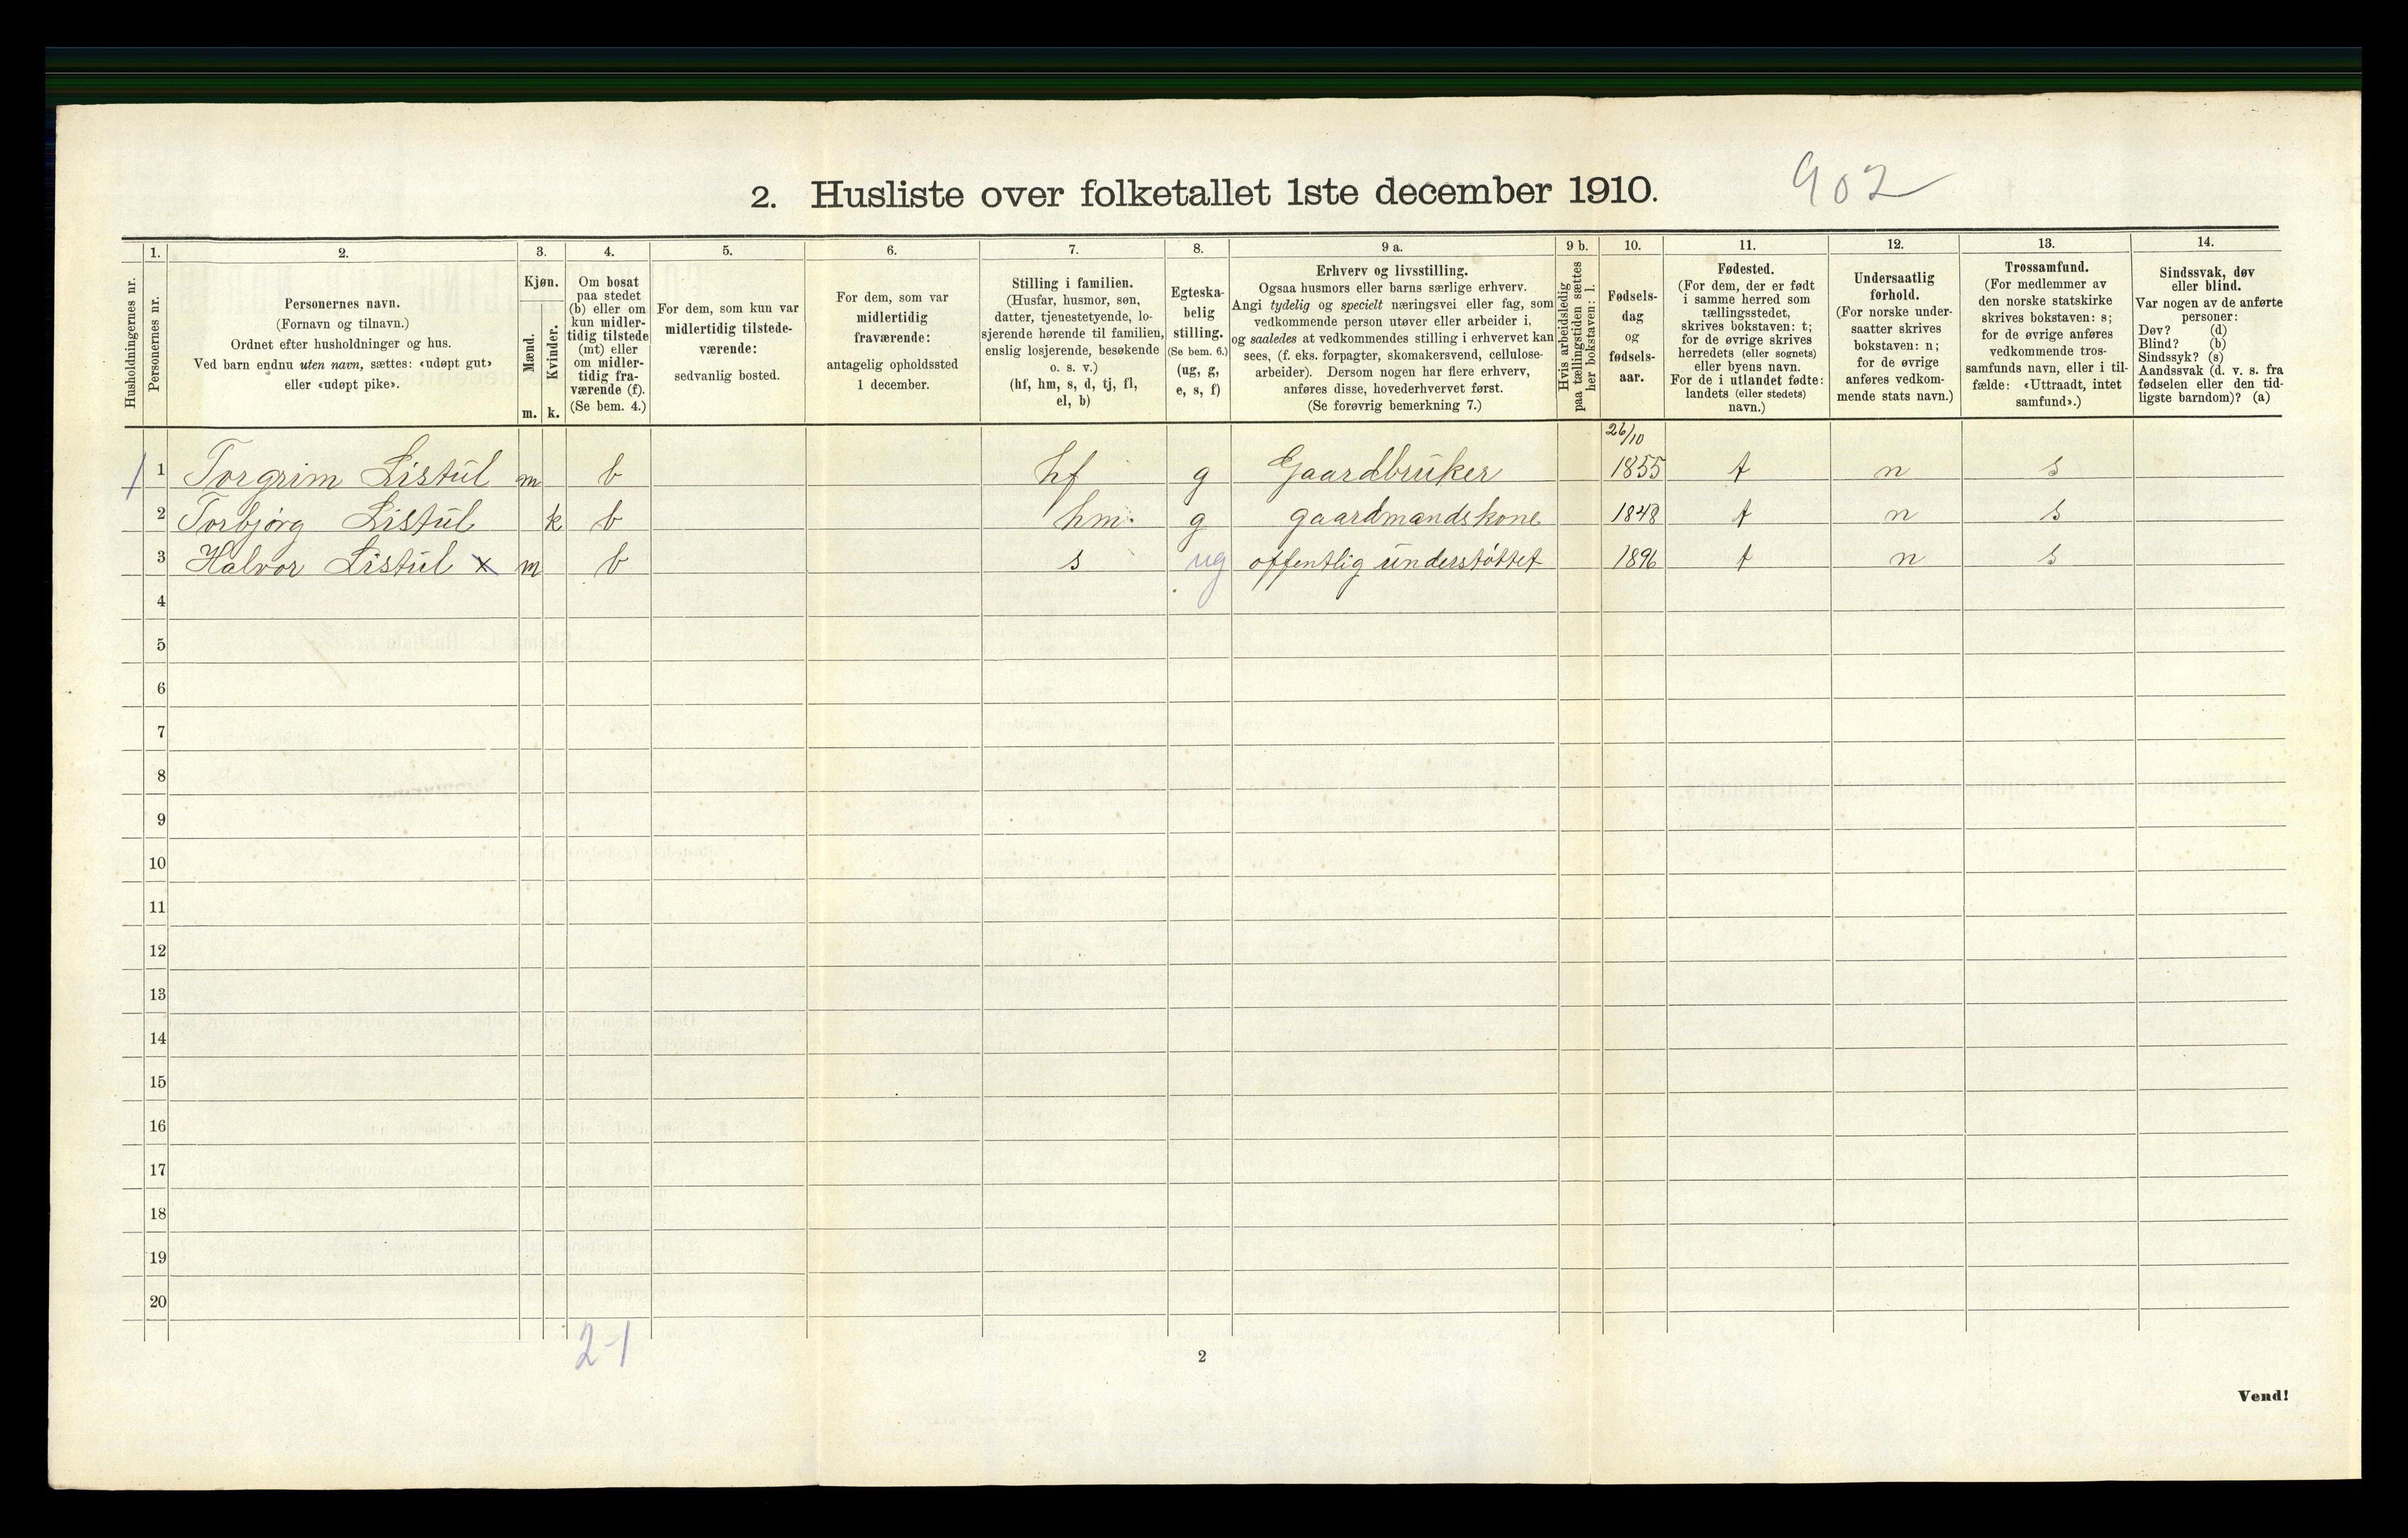 902
2. Husliste over folketallet 1ste december 1910.
Husholdningernes nr.
1.
Personernes nr.
2.
Personernes navn.
(Fornavn og tilnavn.)
Ordnet efter husholdninger og hus.
Ved barn endnu uten navn, sættes: «udøpt gut»
eller «udøpt pike».
3.
Kjøn.
Mænd.
Kvinder.
m. k.
4.
Om bosat
paa stedet
(b) eller om
kun midler-
tidig tilstede
(mt) eller
om midler-
tidig fra-
værende (f).
(Se bem. 4.)
5.
For dem, som kun var
midlertidig tilstede-
værende:
sedvanlig bosted.
6.
For dem, som var
midlertidig
fraværende:
antagelig opholdssted
1 december.
7.
Stilling i familien.
(Husfar, husmor, søn,
datter, tjenestetyende, lo-
sjerende hørende til familien,
enslig losjerende, besøkende
o. s. v.)
(hf, hm, s, d, tj, fl,
el, b)
8.
Egteska-
belig
stilling.
(Se bem. 6.)
(ug, g,
e, s, f)
9 a.
Erhverv og livsstilling.
Ogsaa husmors eller barns særlige erhverv.
Angi tydelig og specielt næringsvei eller fag, som
vedkommende person utøver eller arbeider i,
og saaledes at vedkommendes stilling i erhvervet kan
sees, (f. eks. forpagter, skomakersvend, cellulose-
arbeider). Dersom nogen har flere erhverv,
anføres disse, hovederhvervet først.
(Se forøvrig bemerkning 7.)
9 b.
Hvis arbeidsledig
paa tællingstiden sættes
her bokstaven: l.
10.
Fødsels-
dag
og
fødsels-
aar.
11.
Fødested.
(For dem, der er født
i samme herred som
tællingsstedet,
skrives bokstaven: t;
for de øvrige skrives
herredets (eller sognets)
eller byens navn.
For de i utlandet fødte:
landets (eller stedets)
navn.)
12.
Undersaatlig
forhold.
(For norske under-
saatter skrives
bokstaven: n;
for de øvrige
anføres vedkom-
mende stats navn.)
13.
Trossamfund.
(For medlemmer av
den norske statskirke
skrives bokstaven: s;
for de øvrige anføres
vedkommende tros-
samfunds navn, eller i til-
fælde: «Uttraadt, intet
samfund».)
14.
Sindssvak, døv
eller blind.
Var nogen av de anførte
personer:
Døv? (d)
Blind? (b)
Sindssyk? (s)
Aandssvak (d. v. s. fra
fødselen eller den tid-
ligste barndom)? (a)
26/10
1 1 Torgrim Listul m b hf g Gaardbruker 1855 t n s
2 Torbjørg Listul k b hm. g gaardmandskone 1848 t n s
3 Halvor Listul x m b s ug offentlig understøttet 1896 t n s
4
5
6
7
8
9
10
11
12
13
14
15
16
17
18
19
20
2-1
2
Vend!